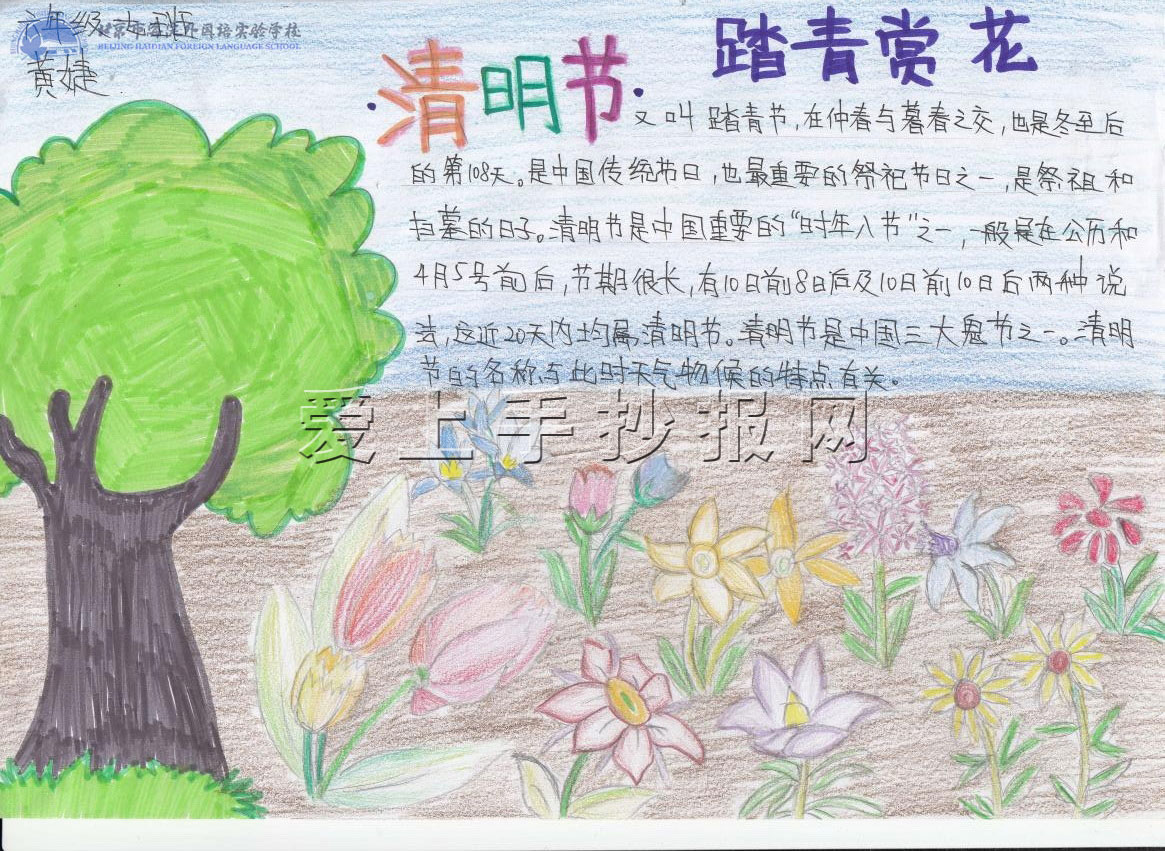 六年级六班
北京市海淀外国语实验学校
BEIJING HAIDIAN FOREIGN LANGUAGE SCHOOL
黄婕
踏青赏花
·清明节·又叫踏青节,在仲春与暮春之交,也是冬至后
的第108天。是中国传统节日,也最重要的祭祀节日之一,是祭祖和
扫墓的日子。清明节是中国重要的“时年八节”之一,一般是在公历和
4月5号前后,节期很长,有10日前8日后及10日前10日后两种说
法,这近20天内均属清明节。清明节是中国三大鬼节之一。清明
节的名称与此时天气物候的特点有关。
爱上手抄报网